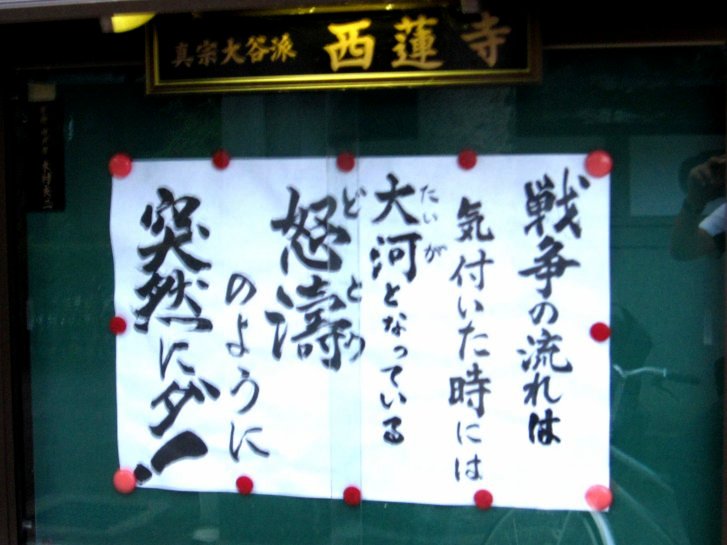 真宗大谷派 西蓮寺
戦争の流れは
気付いた時には
大河となっている
たいが
怒濤
どとう
のように
突然にダ!